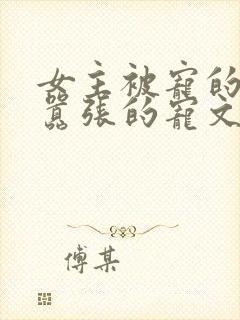 女主被寵的
囂張的寵文
傅某